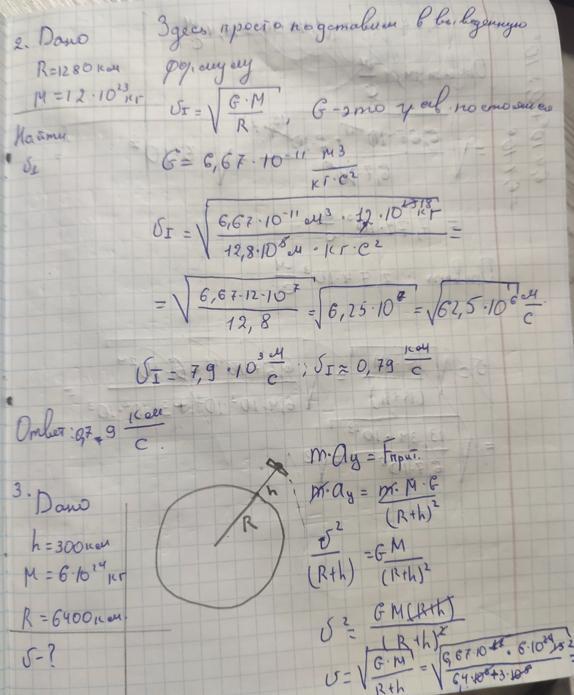 2. Дано
Здесь просто подставим в выведенную
формулу
R=1280км
M=1,2·10²³кг
Найти
υ₁
υ_I = √(G·M / R), G-это грав. постоянная
G = 6,67·10⁻¹¹ м³ / кг·с²
υ_I = √(6,67·10⁻¹¹ м³ · 12·10 кг / 12,8·10⁵м · кг·с²) =
= √(6,67·12·10⁷ / 12,8) = √(6,25·10⁷) = √(62,5·10⁶) м/с
υ_I = 7,9·10³ м/с ; υ_I ≈ 0,79 км/с
Ответ: 0,79 км/с.
3. Дано
h=300км
M=6·10²⁴кг
R=6400км
υ-?
R
h
m·aу = Fприт.
m·aу = m·M·G / (R+h)²
υ² / (R+h) = G M / (R+h)²
υ² = GM(R+h) / (R+h)²
υ = √(G·M / R+h) = √(6,67·10 · 6·10²⁴ / 64·10⁵+3·10⁵) =